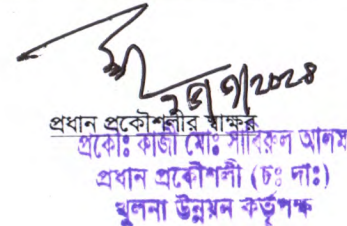 ২৩/৭/২০২৪
প্রধান প্রকৌশলীর স্বাক্ষর
প্রকৌঃ কাজী মোঃ সাবিরুল আলম
প্রধান প্রকৌশলী (চঃ দাঃ)
খুলনা উন্নয়ন কর্তৃপক্ষ